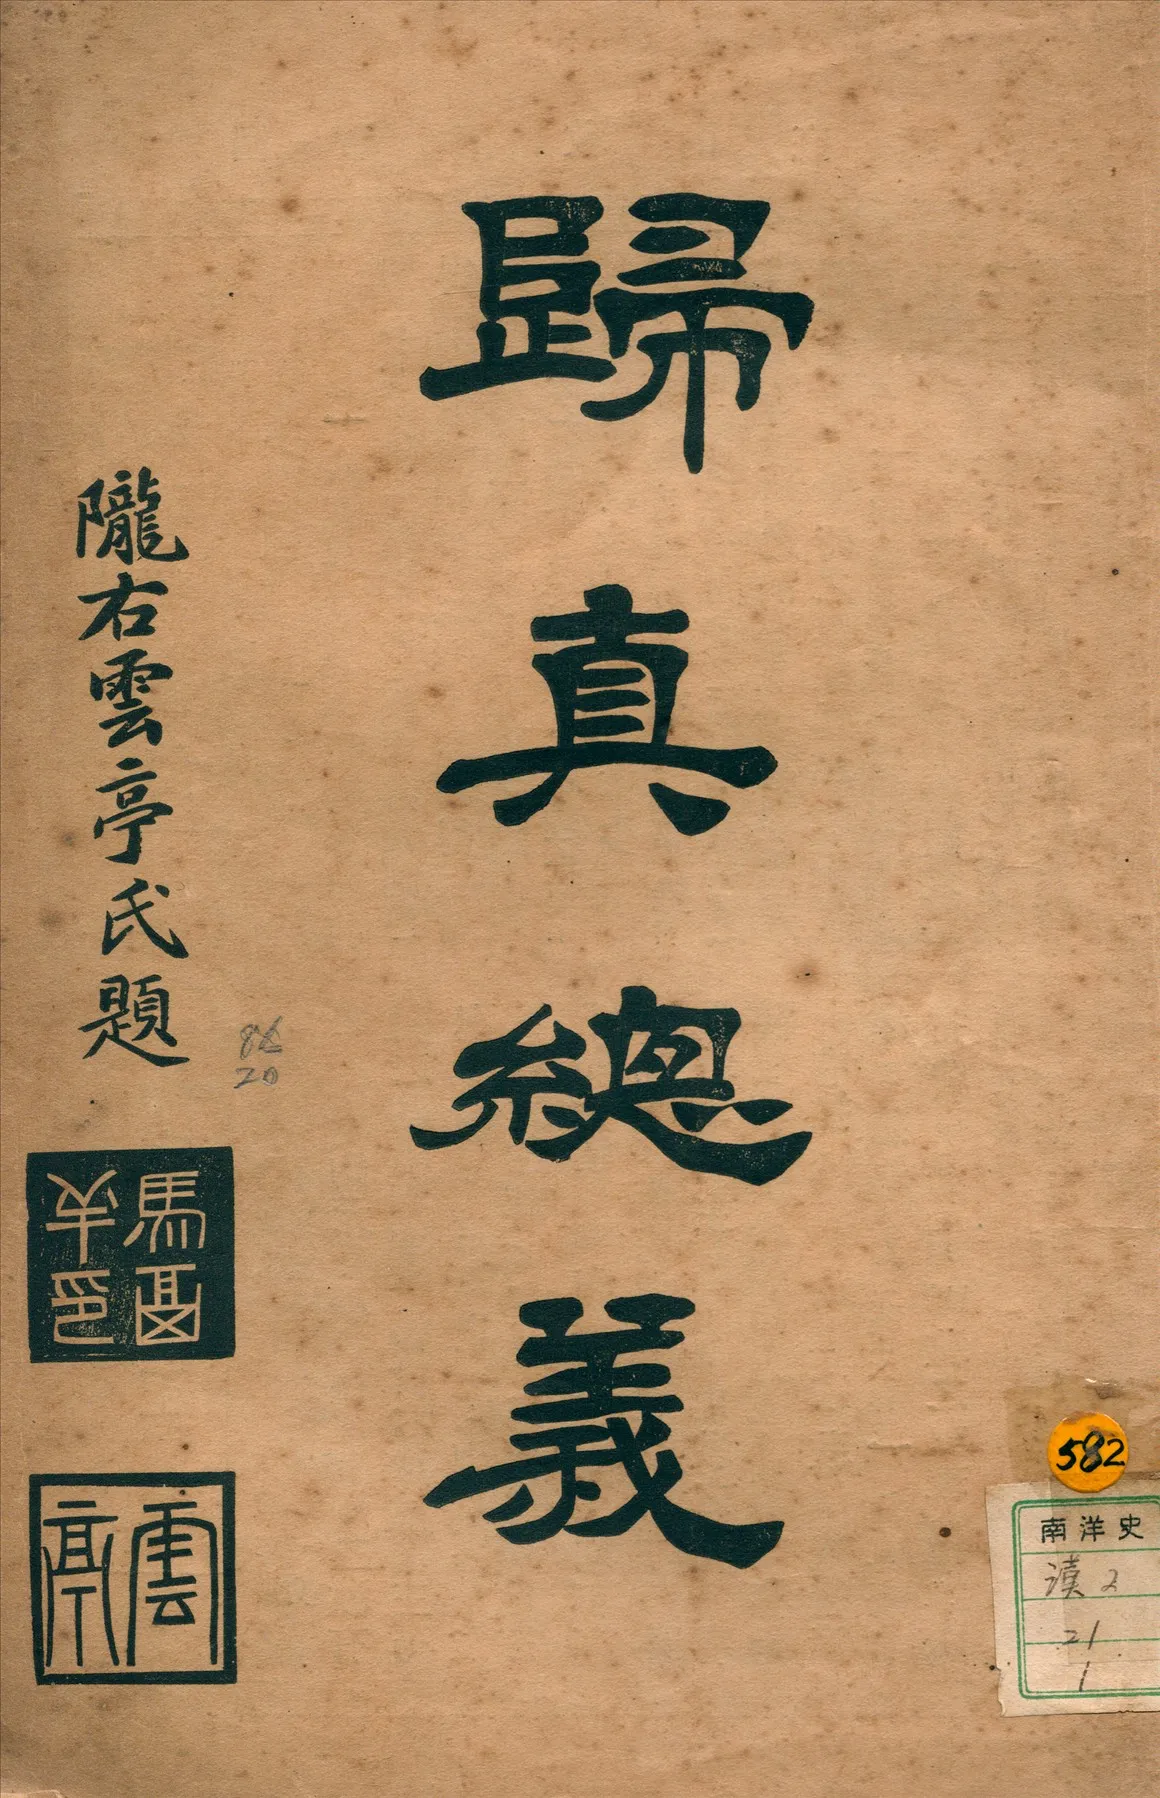 歸真總義
隴右雲亭氏題
馬畐羊印
雲亭
20
582
南洋史
漢2
21
1